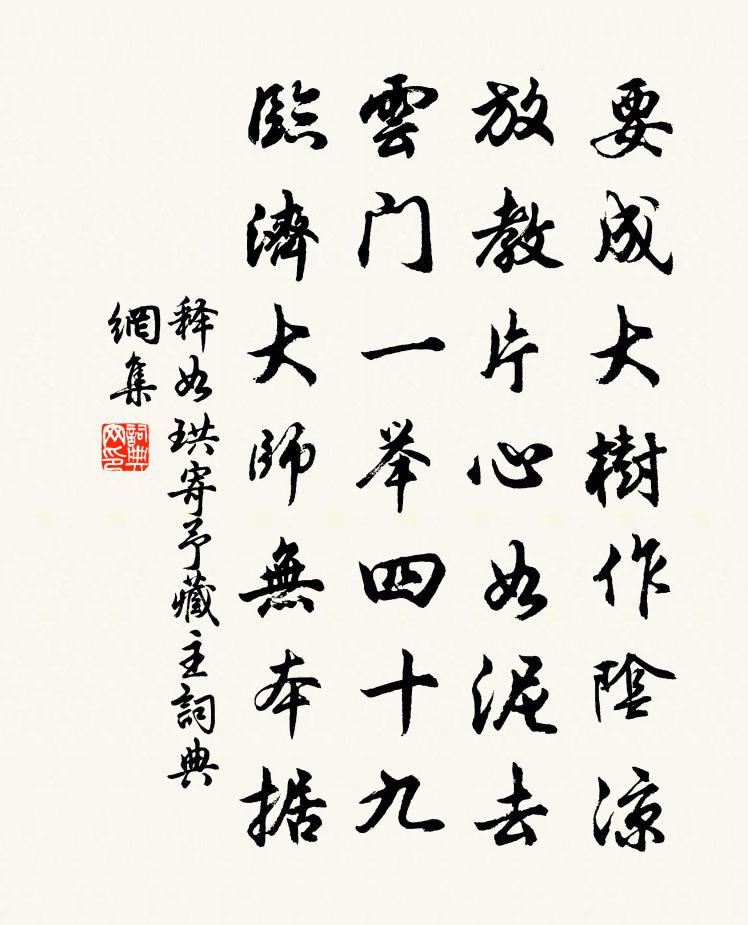 要成大樹作陰涼
放教片心如泥去
雲門一举四十九
臨濟大師無本据
释如珙寄予藏主詞典
網集
詞典
网印